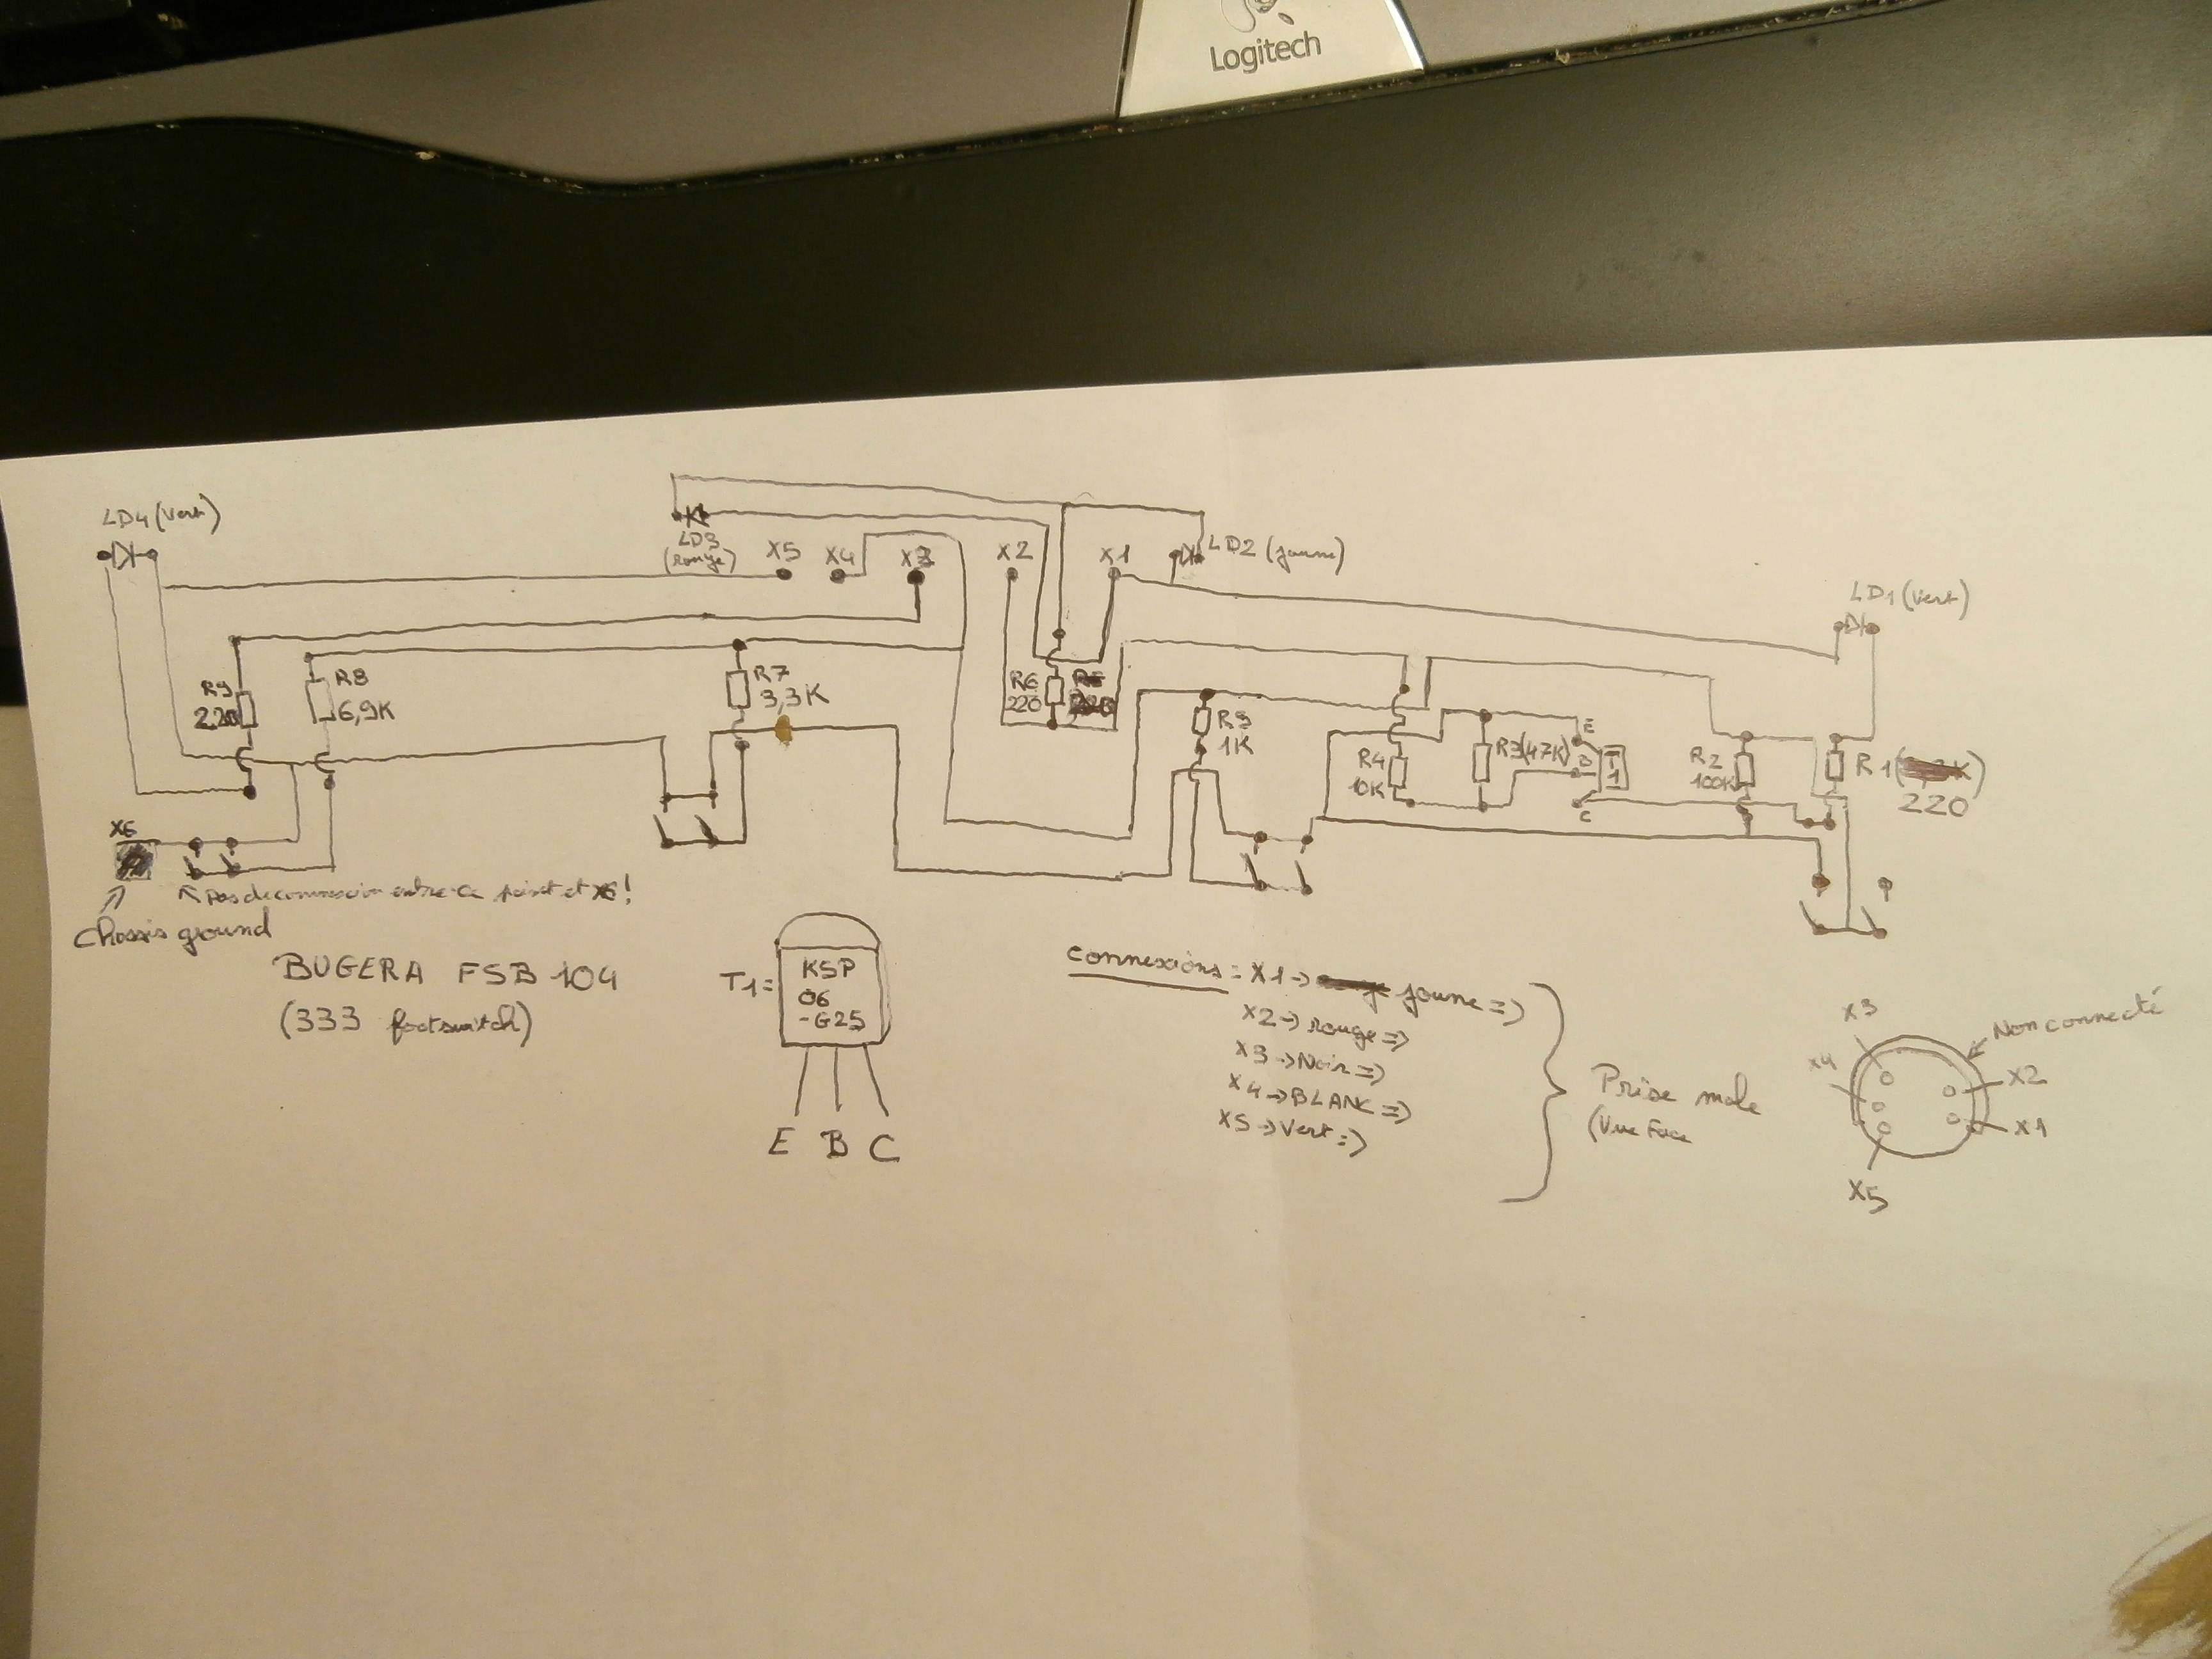 Logitech
LD4 (Vert)
LD3
(rouge)
X5
X4
X3
X2
X1
LD2 (jaune)
LD1 (Vert)
R9
220
R8
6,9K
R7
3,3K
R6
220
R5
1K
R4
10K
R3 (47K)
E
B
C
T1
R2
100K
R1
220
X6
Pas de connexion entre ce point et X6!
Chassis ground
BUGERA FSB 104
(333 footswitch)
T1 =
KSP
06
-G25
E B C
Connexions = X1 -> jaune =>
X2 -> rouge =>
X3 -> Noir =>
X4 -> BLANC =>
X5 -> Vert =>
Prise male
(Vue Face
X3
Non connecté
X4
X2
X1
X5